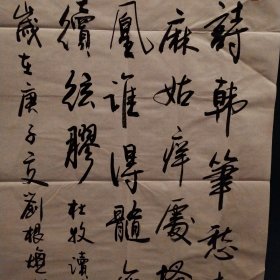 詩韓筆愁
麻姑痒處搔
凰誰得髓無
續絃膠 杜牧讀
歲在庚子夏劉根